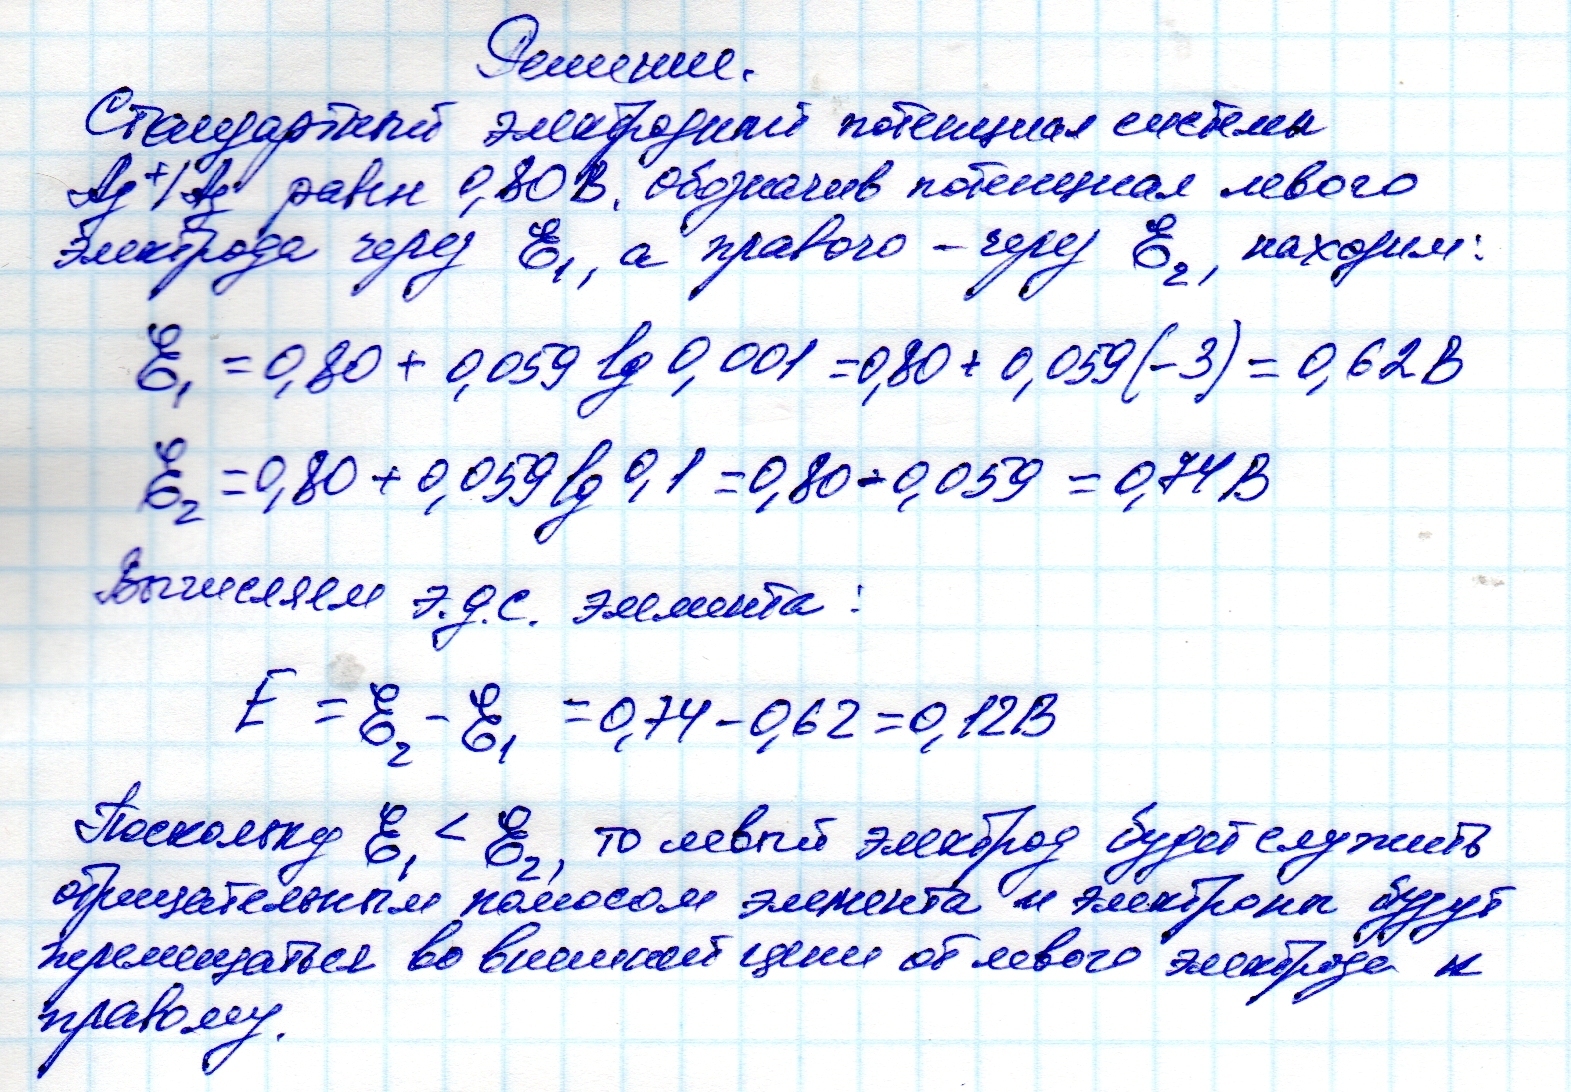 Решение.
Стандартный электродный потенциал системы
Ag⁺/Ag равен 0,80 В. Обозначив потенциал левого
электрода через ℰ₁, а правого – через ℰ₂, находим:
ℰ₁ = 0,80 + 0,059 lg 0,001 = 0,80 + 0,059(-3) = 0,62 В
ℰ₂ = 0,80 + 0,059 lg 0,1 = 0,80 - 0,059 = 0,74 В
Вычисляем э.д.с. элемента:
E = ℰ₂ - ℰ₁ = 0,74 - 0,62 = 0,12 В
Поскольку ℰ₁ < ℰ₂, то левый электрод будет служить
отрицательным полюсом элемента и электроны будут
перемещаться во внешней цепи от левого электрода к
правому.